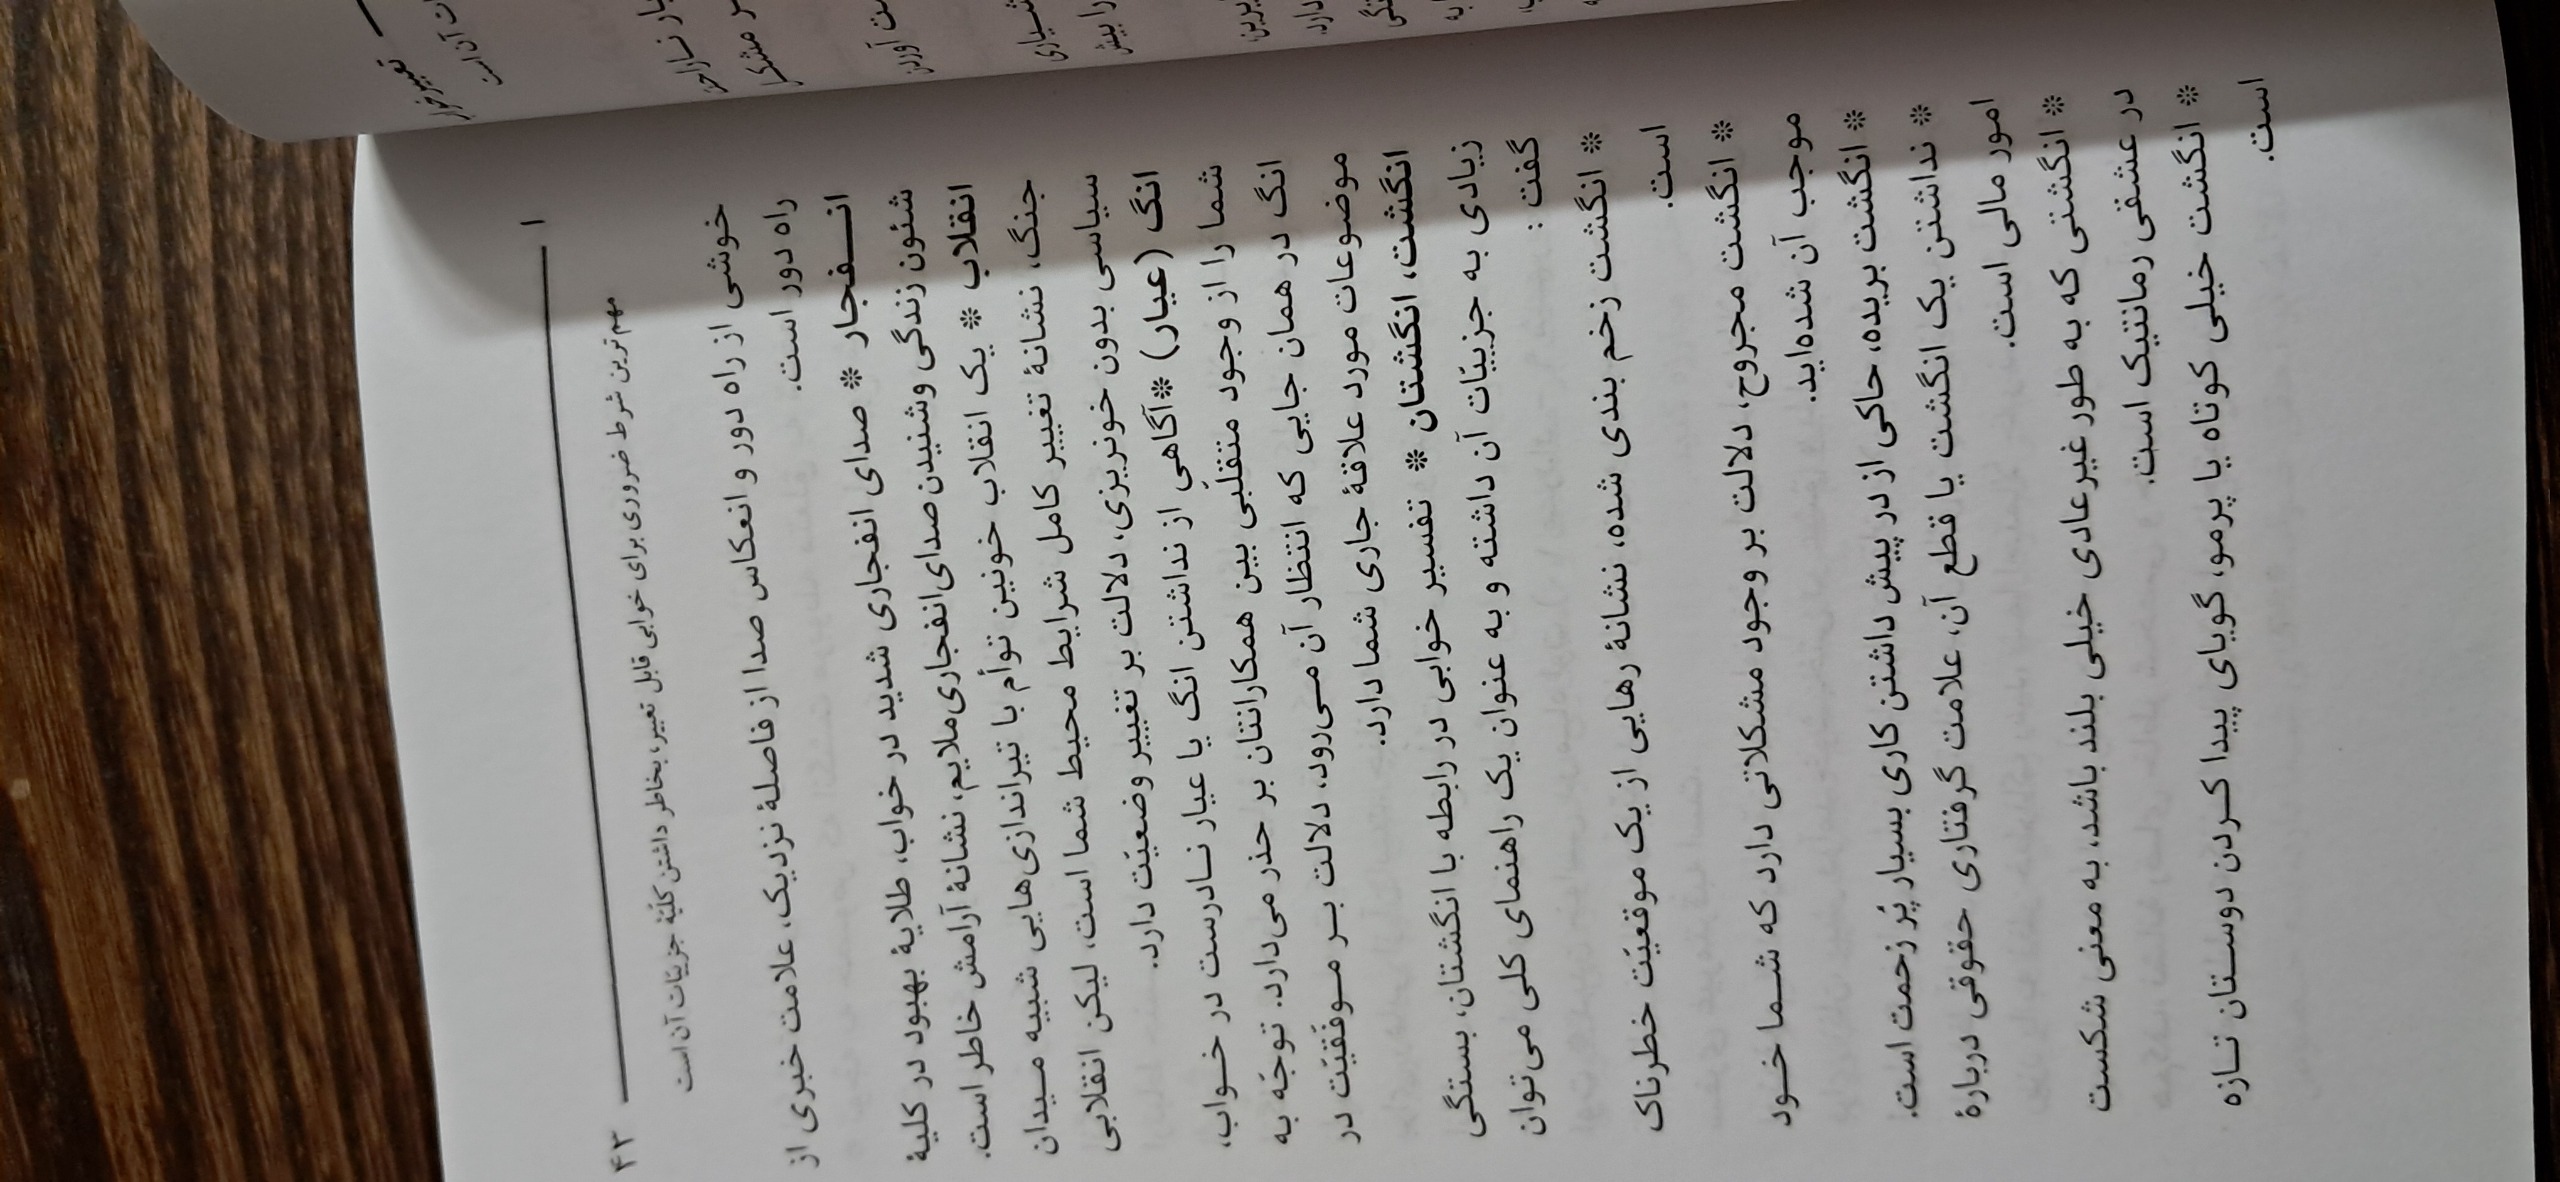 ا
۴۳
مهم‌ترین شرط ضروری برای خوابی قابل تعبیر، بخاطر داشتن کلیّهٔ جزییّات آن است
خوشی از راه دور و انعکاس صدا از فاصلهٔ نزدیک، علامت خبری از
راه دور است.
انـفجار * صدای انفجاری شدید در خواب، طلایهٔ بهبود در کلیهٔ
شئون زندگی وشنیدن صدای‌انفجاری‌ملایم، نشانهٔ آرامش خاطر است.
انقلاب * یک انقلاب خونین توأم با تیراندازی‌هایی شبیه مـیدان
جنگ، نشانهٔ تغییر کامل شرایط محیط شما است، لیکن انقلابی
سیاسی بدون خونریزی، دلالت بر تغییر وضعیّت دارد.
انگ (عیار) *آگاهیِ از نداشتن انگ یا عیار نـادرست در خـواب،
شما را از وجود متقلّبی بین همکارانتان بر حذر می‌دارد. توجّه به
انگ در همان جایی که انتظار آن مـی‌رود، دلالت بـر مـوفّقیّت در
موضوعات مورد علاقهٔ جاری شما دارد.
انگشت، انگشتان * تفسیر خوابی در رابطه با انگشتان، بستگی
زیادی به جزییّات آن داشته و به عنوان یک راهنمای کلی می‌توان
گفت :
* انگشت زخم بندی شده، نشانهٔ رهایی از یک موقعیّت خطرناک
است.
* انگشت مجروح، دلالت بر وجود مشکلاتی دارد که شـما خـود
موجب آن شده‌اید.
* انگشت بریده، حاکی از در پیش داشتن کاری بسیار پُر زحمت است.
* نداشتن یک انگشت یا قطع آن، علامت گرفتاری حقوقی دربارهٔ
امور مالی است.
* انگشتی که به طور غیرعادی خیلی بلند باشد، به معنی شکست
در عشقی رمانتیک است.
* انگشت خیلی کوتاه یا پرمو، گویای پیدا کـردن دوسـتان تـازه
است.